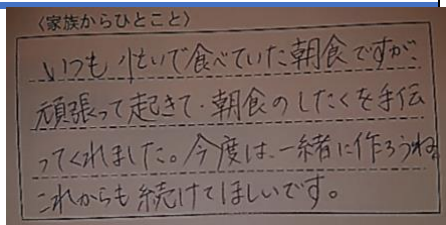 〈家族からひとこと〉
いつも 忙いで食べていた朝食ですが、
頑張って起きて、朝食のしたくを手伝
ってくれました。今度は、一緒に作ろうね。
これからも続けてほしいです。